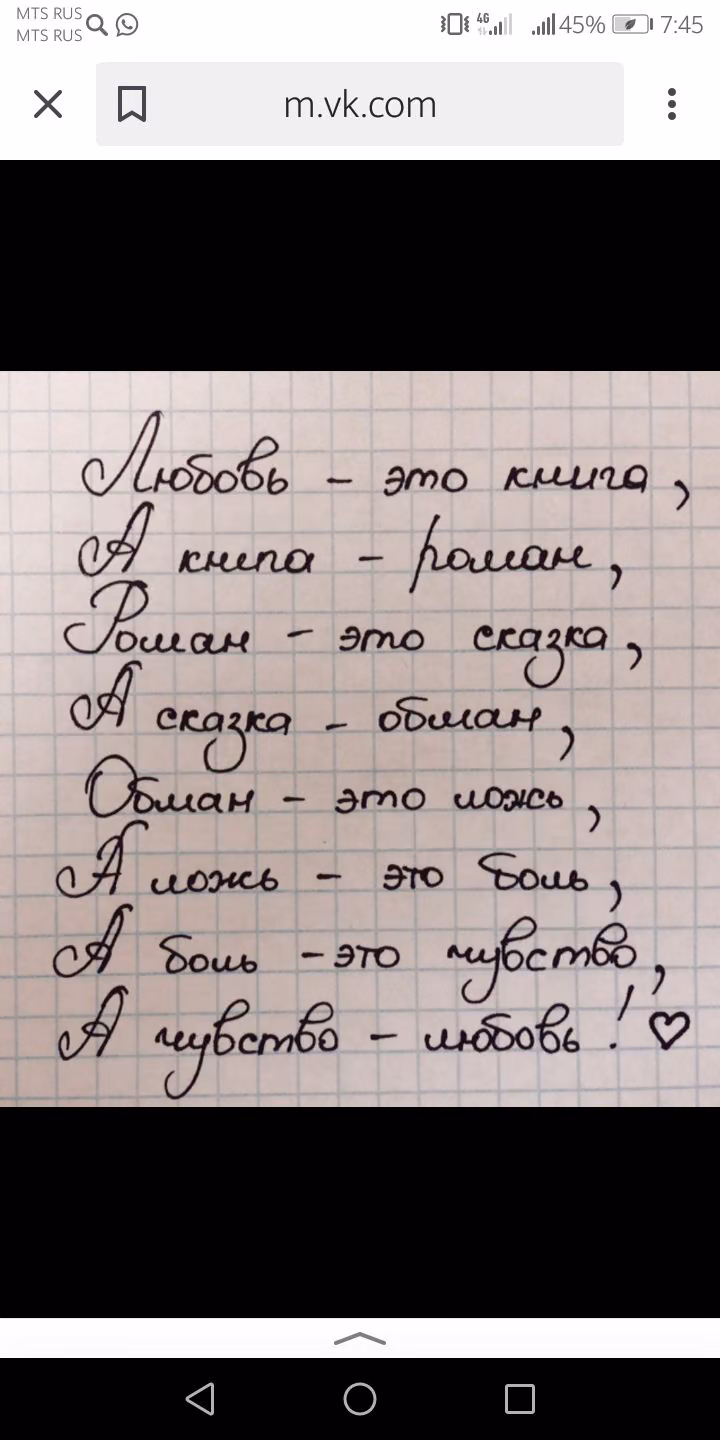 MTS RUS
MTS RUS
4G 45% 7:45
m.vk.com
Любовь - это книга,
А книга - роман,
Роман - это сказка,
А сказка - обман,
Обман - это ложь,
А ложь - это боль,
А боль - это чувство,
А чувство - любовь! ♡